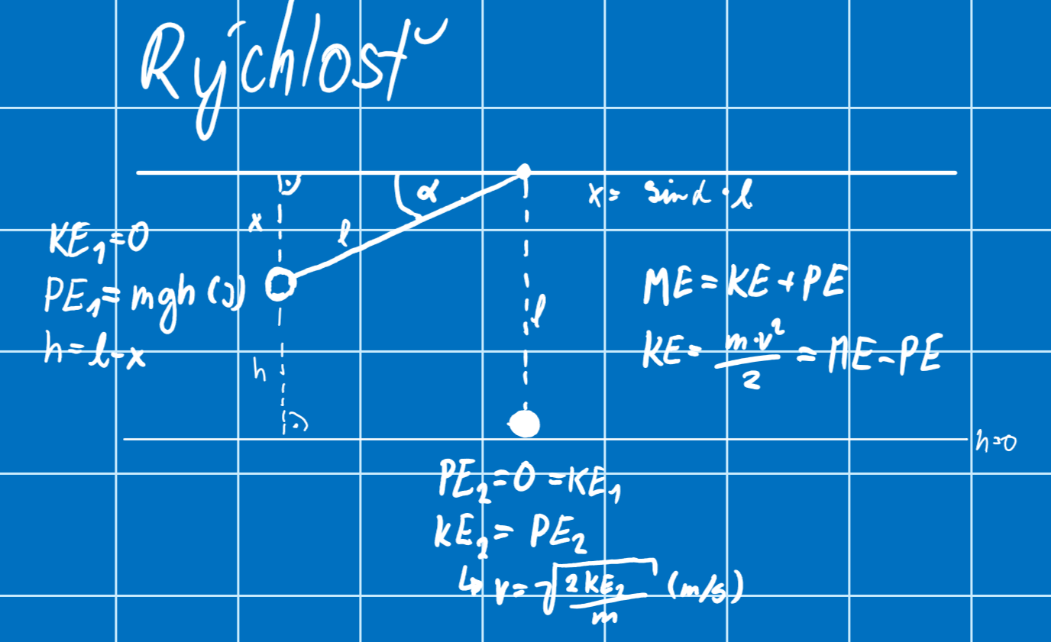 Rýchlosť
α
x = sinα · l
x
l
KE₁=0
PE₁= mgh (J)
h= l-x
h
l
ME = KE + PE
KE = m·v²/2 = ME - PE
h=0
PE₂=0 =KE₁
KE₂= PE₂
↳ v= √(2KE₂/m) (m/s)